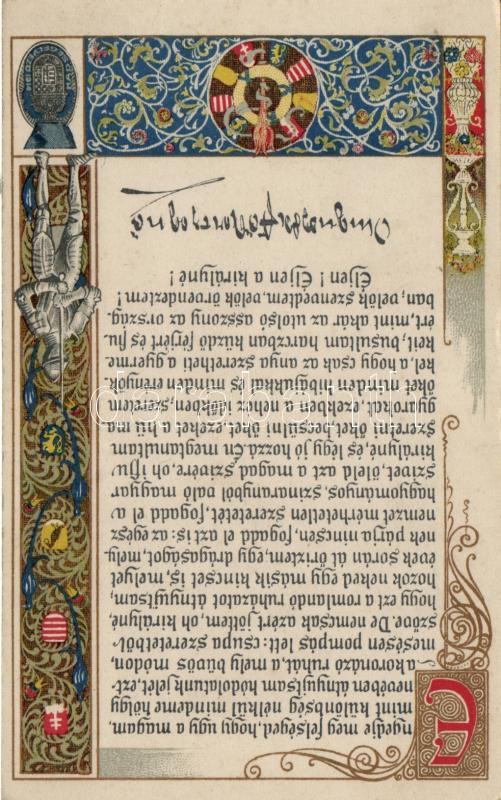 Engedje meg felséged, hogy, ugy a magam,
mint különbség nélkül mindeme hölgy
nevében átnyujtsam hódolatunk jelét, ezt
a koronázó ruhát, mely a bűvös, módon
mesésen pompás lett: csupa szeretetből
szőve. De nemcsak azért jöttem, oh, királyné,
hogy ezt a romlandó ruházatot átnyujtsam,
hozok neked egy másik kincset is, melyet
évek során át őriztem, egy drágaságot, mely-
nek párja nincsen, fogadd el azt is: az egész
nemzet mérhetetlen szeretetét, fogadd el a
hagyományos, szinaranyból való magyar
szivet, öleld azt a magad szivére, oh ifju
királyné, és légy jó hozzá. Én megtanultam
szeretni őket, becsülni őket, ezeket a hü ma-
gyarokat, ezekben a nehéz időkben, szeretem
őket minden hibájukkal és minden erényök-
kel, a hogy csak az anya szeretheti a gyerme-
keit, busultam harcban küzdő férjért és fiu-
ért, mint akár az utolsó asszony az ország-
ban, velök szenvedtem, velök örvendeztem!
Éljen! Éljen a királyné!
darabanth